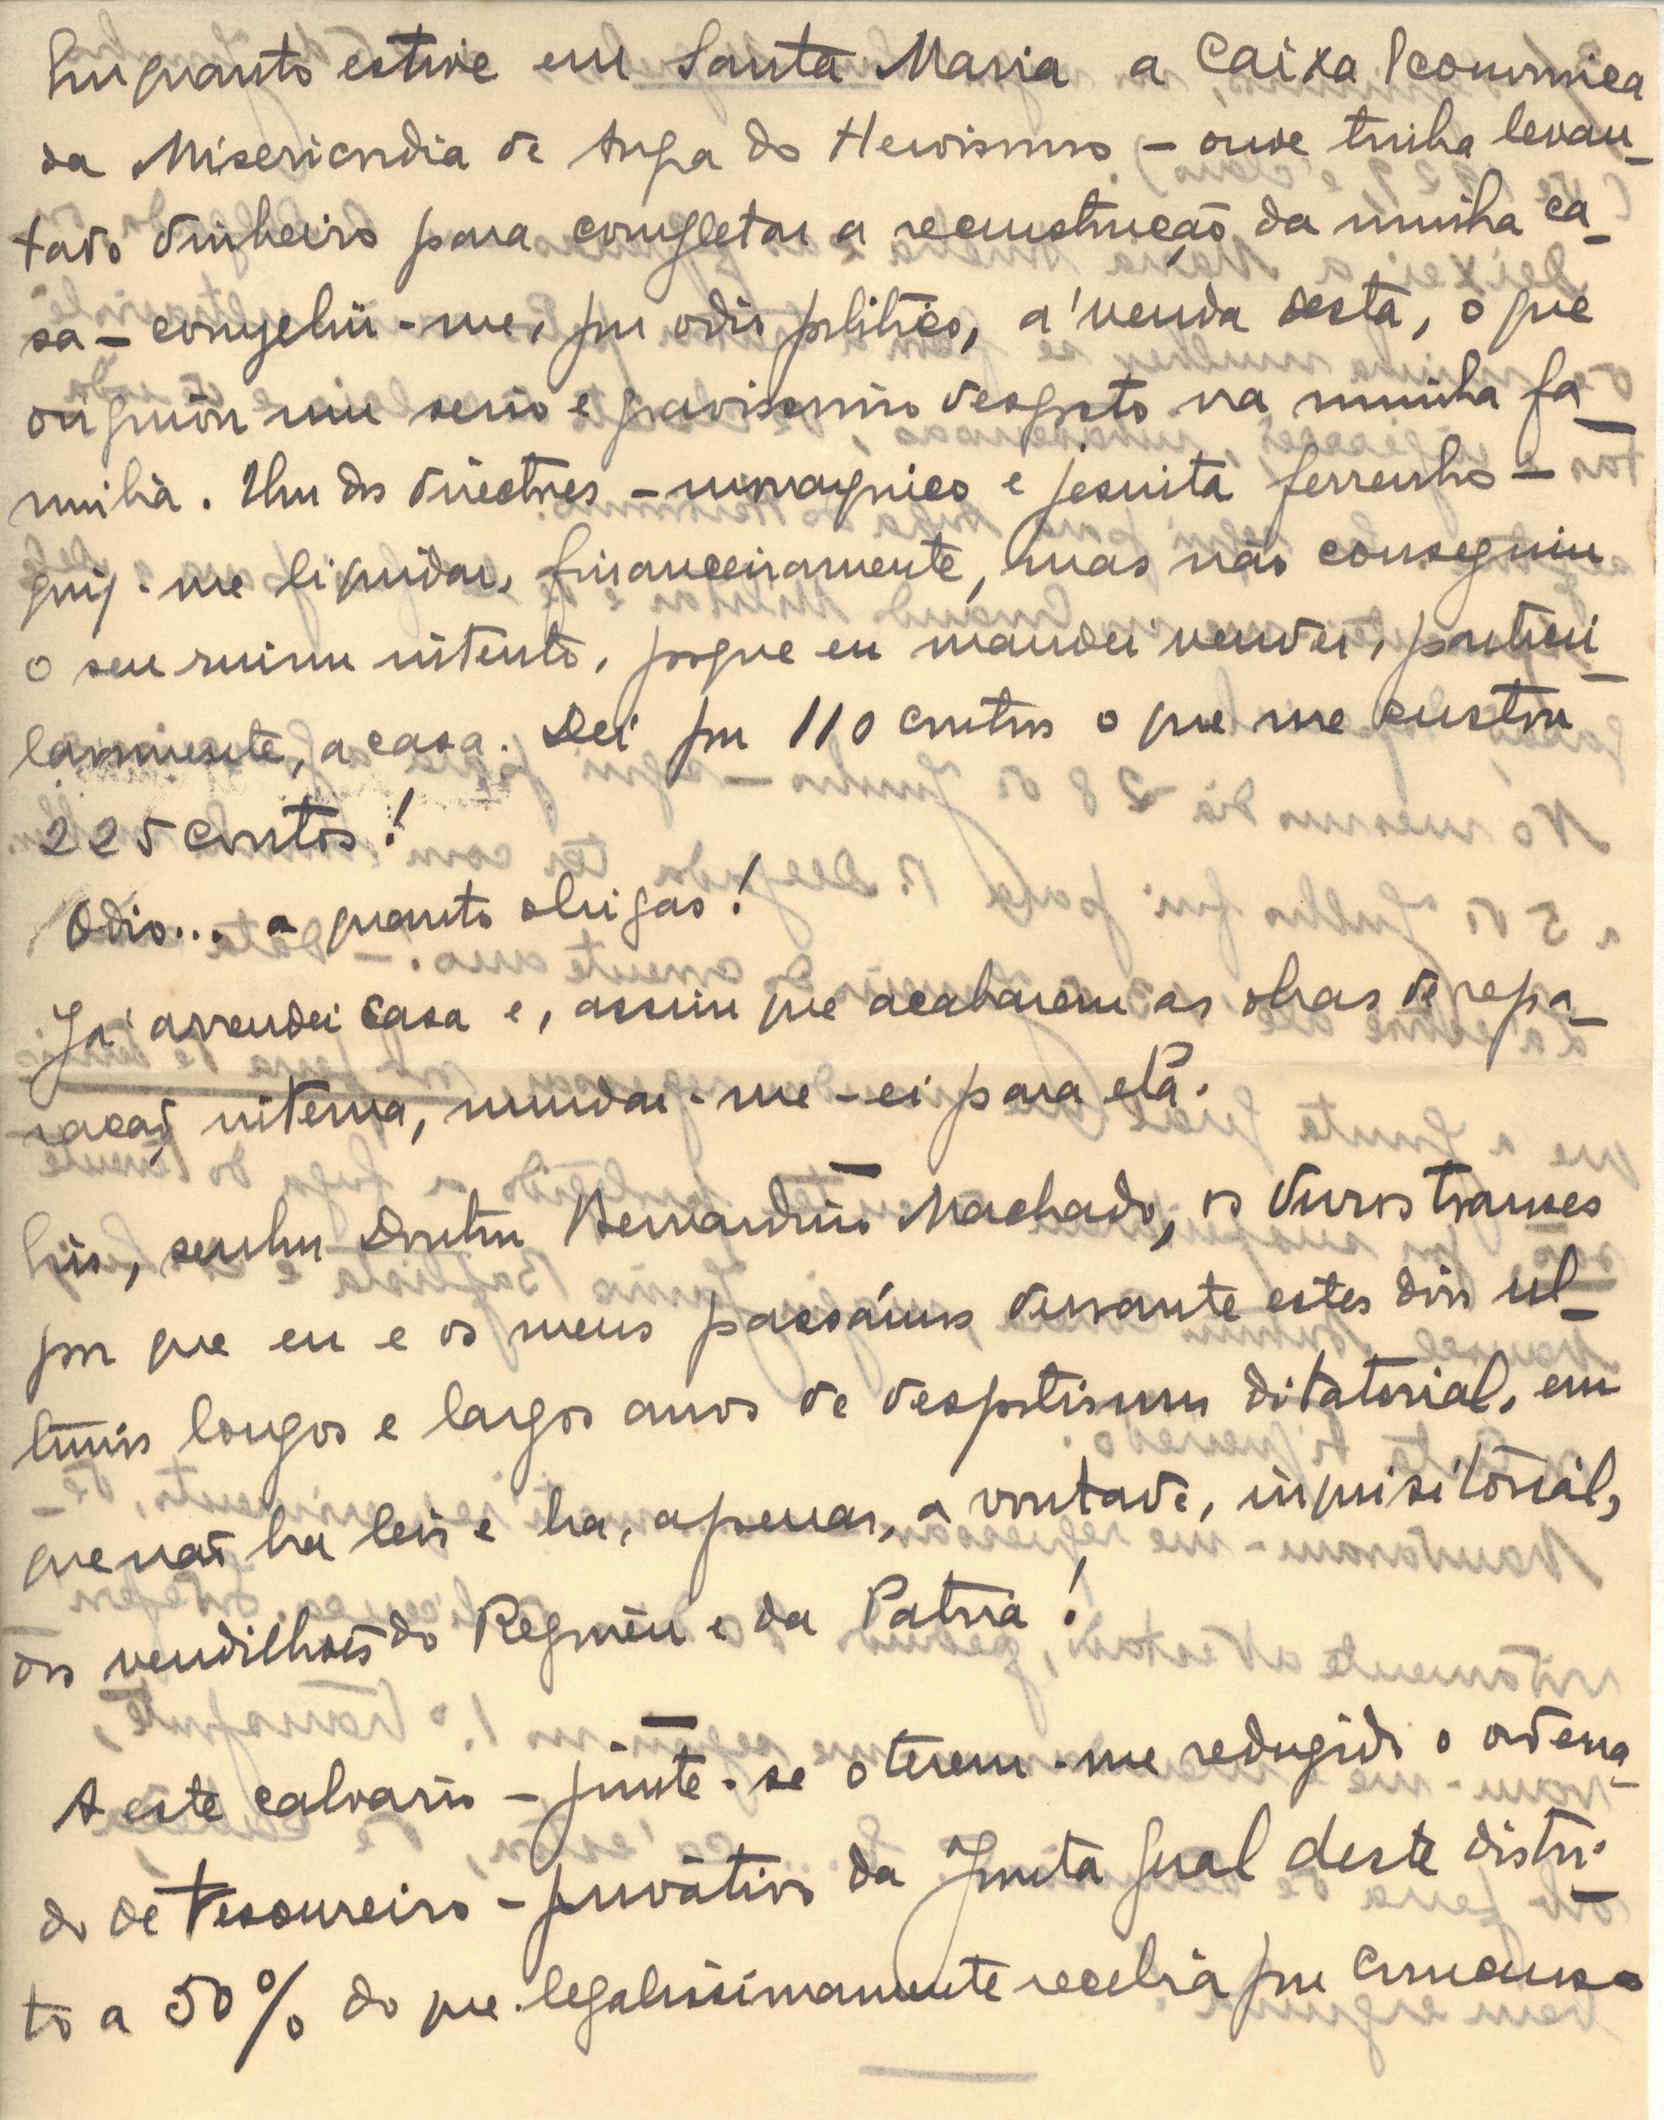 Enquanto estive em Santa Maria a Caixa Economica
da Misericordia de Angra do Heroismo - onde tinha levan-
tado dinheiro para completar a reconstrução da minha ca-
sa - compeliu-me, por odio politico, á venda desta, o que
originou um serio e gravissimo desgosto na minha fa-
milia. Um dos directores - monarquico e jesuita ferrenho -
quiz-me liquidar, financeiramente, mas não conseguiu
o seu ruim intento, porque eu mandei vender, particu-
larmente, a casa. Dei por 110 contos o que me custou
225 contos!
Odio... a quanto obrigas!
Já arrendei casa e, assim que acabarem as obras de repa-
ração interna, mudar-me-ei para ela.
Eis, senhor Doutor Bernardino Machado, os duros transes
por que eu e os meus passámos durante estes dois ul-
timos longos e largos anos de despotismo ditatorial, em
que não ha leis e ha, apenas, a vontade, inquisitorial,
dos vendilhões do Regimen e da Patria!
A este calvario - junte-se o terem-me reduzido o ordena-
do de tesoureiro - privativo da Junta Geral deste distri-
to a 50% do que legalissimamente recebia por concurso